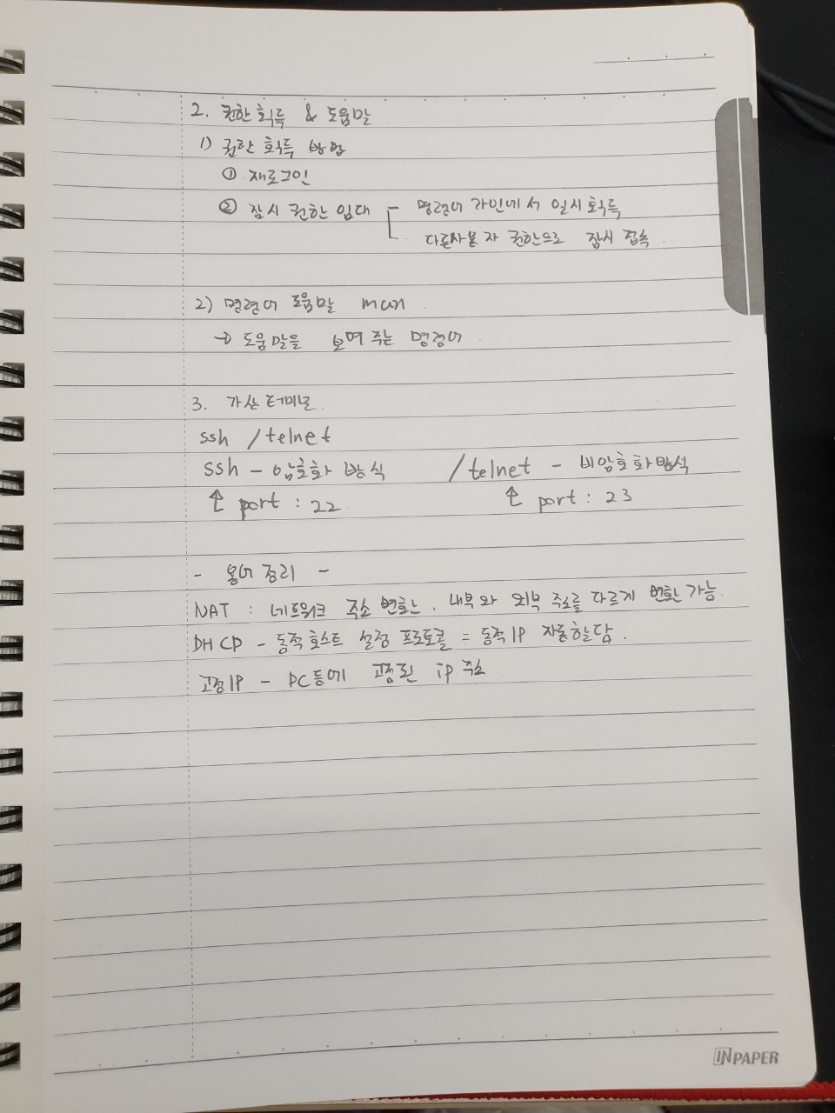 2. 권한 획득 & 도움말
1) 권한 획득 방법
① 재로그인
② 잠시 권한 임대 - 명령어 라인에서 일시 획득
다른사용자 권한으로 잠시 접속
2) 명령어 도움말 man
→ 도움말을 보여주는 명령어
3. 가상 터미널
ssh / telnet
ssh - 암호화 방식 / telnet - 비암호화방식
↑ port : 22 ↑ port : 23
- 용어 정리 -
NAT : 네트워크 주소 변환, 내부와 외부 주소를 다르게 변환 가능.
DHCP - 동적 호스트 설정 프로토콜 = 동적IP 자동할당.
고정IP - PC등에 고정된 ip 주소
INPAPER